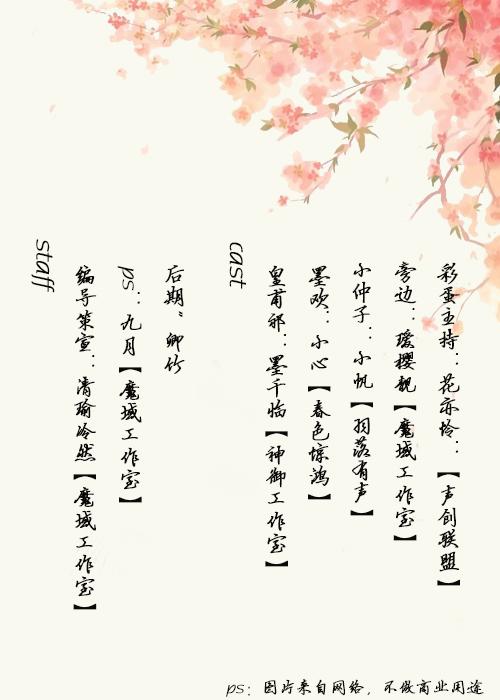 staff
编导策宣：清瑜泠然【魔域工作室】
ps：九月【魔域工作室】
后期：卿竹
cast
皇甫邪：墨千临【神御工作室】
墨欢：小心【春色惊鸿】
小仲子：小帆【羽落有声】
旁边：瑷樱靓【魔域工作室】
彩蛋主持：花亦怜：【声创联盟】
ps：图片来自网络，不做商业用途